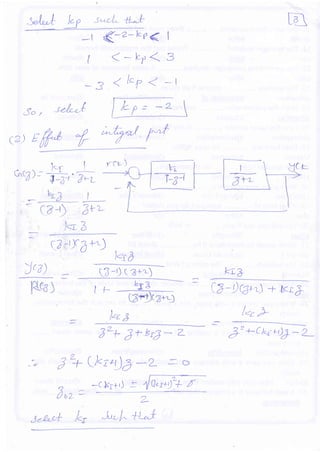 3
Select kp such that
-1 < -2-kp < 1
1 < -kp < 3
-3 < kp < -1
So, select kp = -2
(2) Effect of integral part
G(z) = kI/1-z⁻¹ · 1/z+2
r(k) - kI/1-z⁻¹ 1/z+2 y(k
= kI z/(z-1) 1/z+2
= kI z/(z-1)(z+2)
y(z)/R(z) = kI z/(z-1)(z+2) / 1 + kI z/(z-1)(z+2) = kI z/(z-1)(z+2) + kI z
= kI z/z²+ z + kI z - 2 = kI z/z²+(kI+1)z-2
∴ z²+ (kI+1)z - 2 = 0
z1,2 = -(kI+1) ± √(kI+1)²+ 8/2
select kI such that